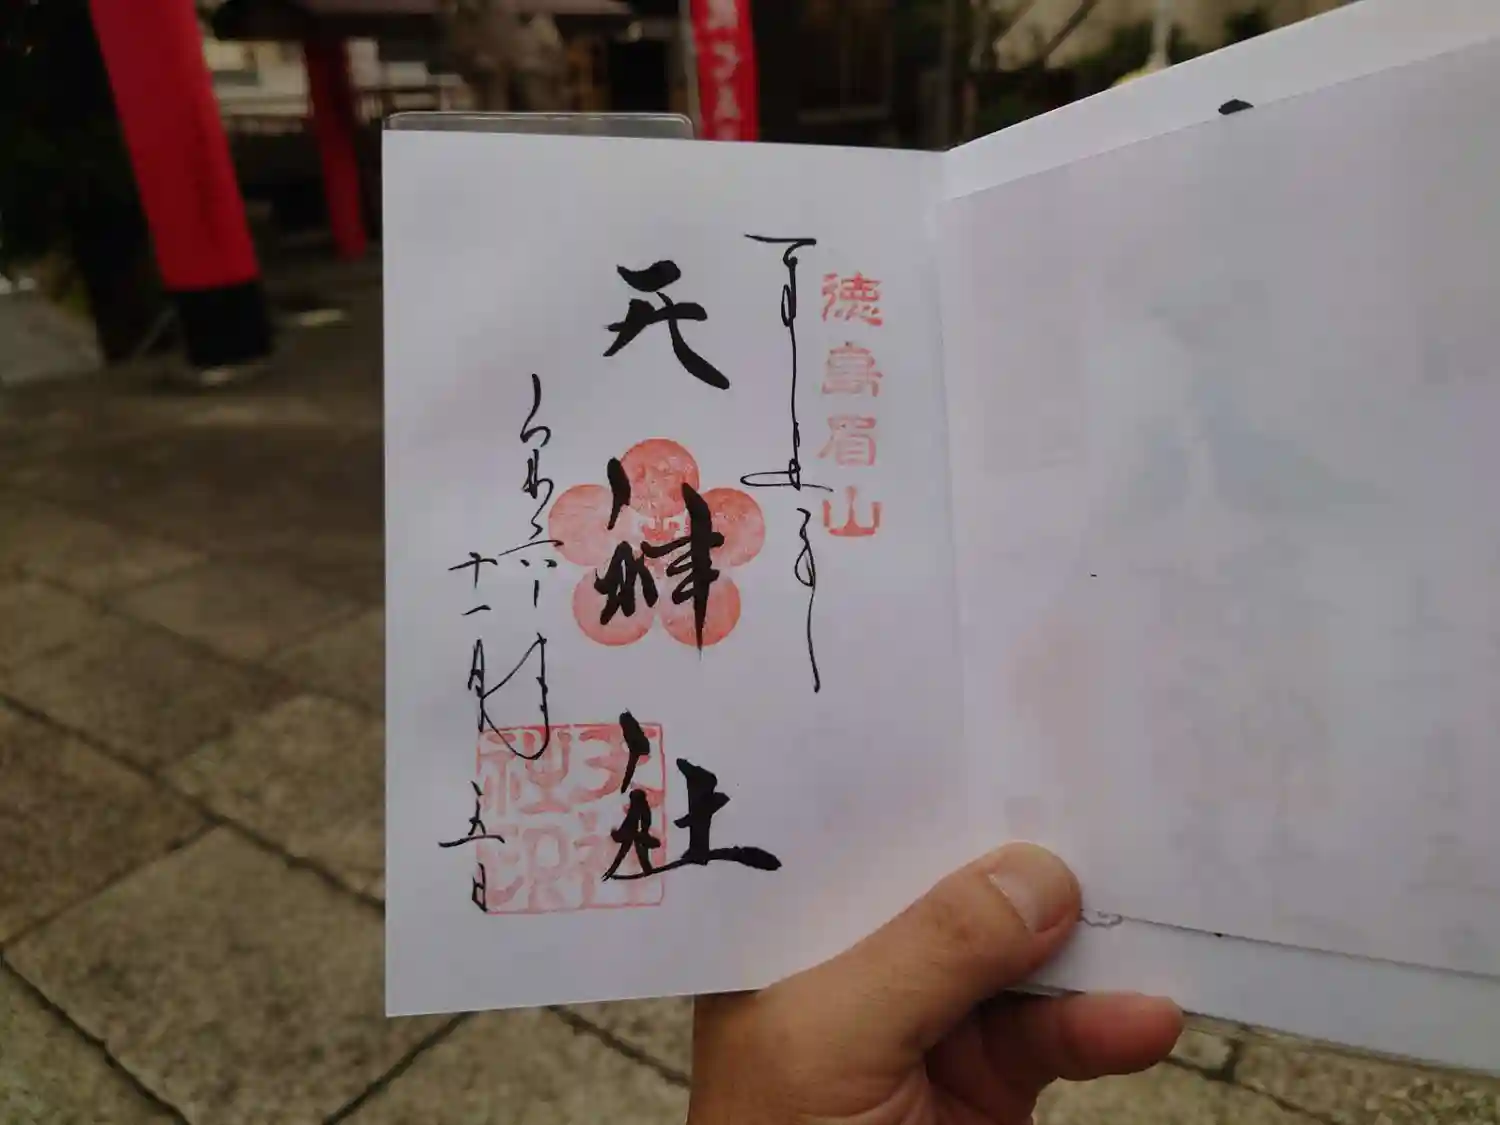 徳島眉山
天神社
令和六年
十一月五日
天神
社印